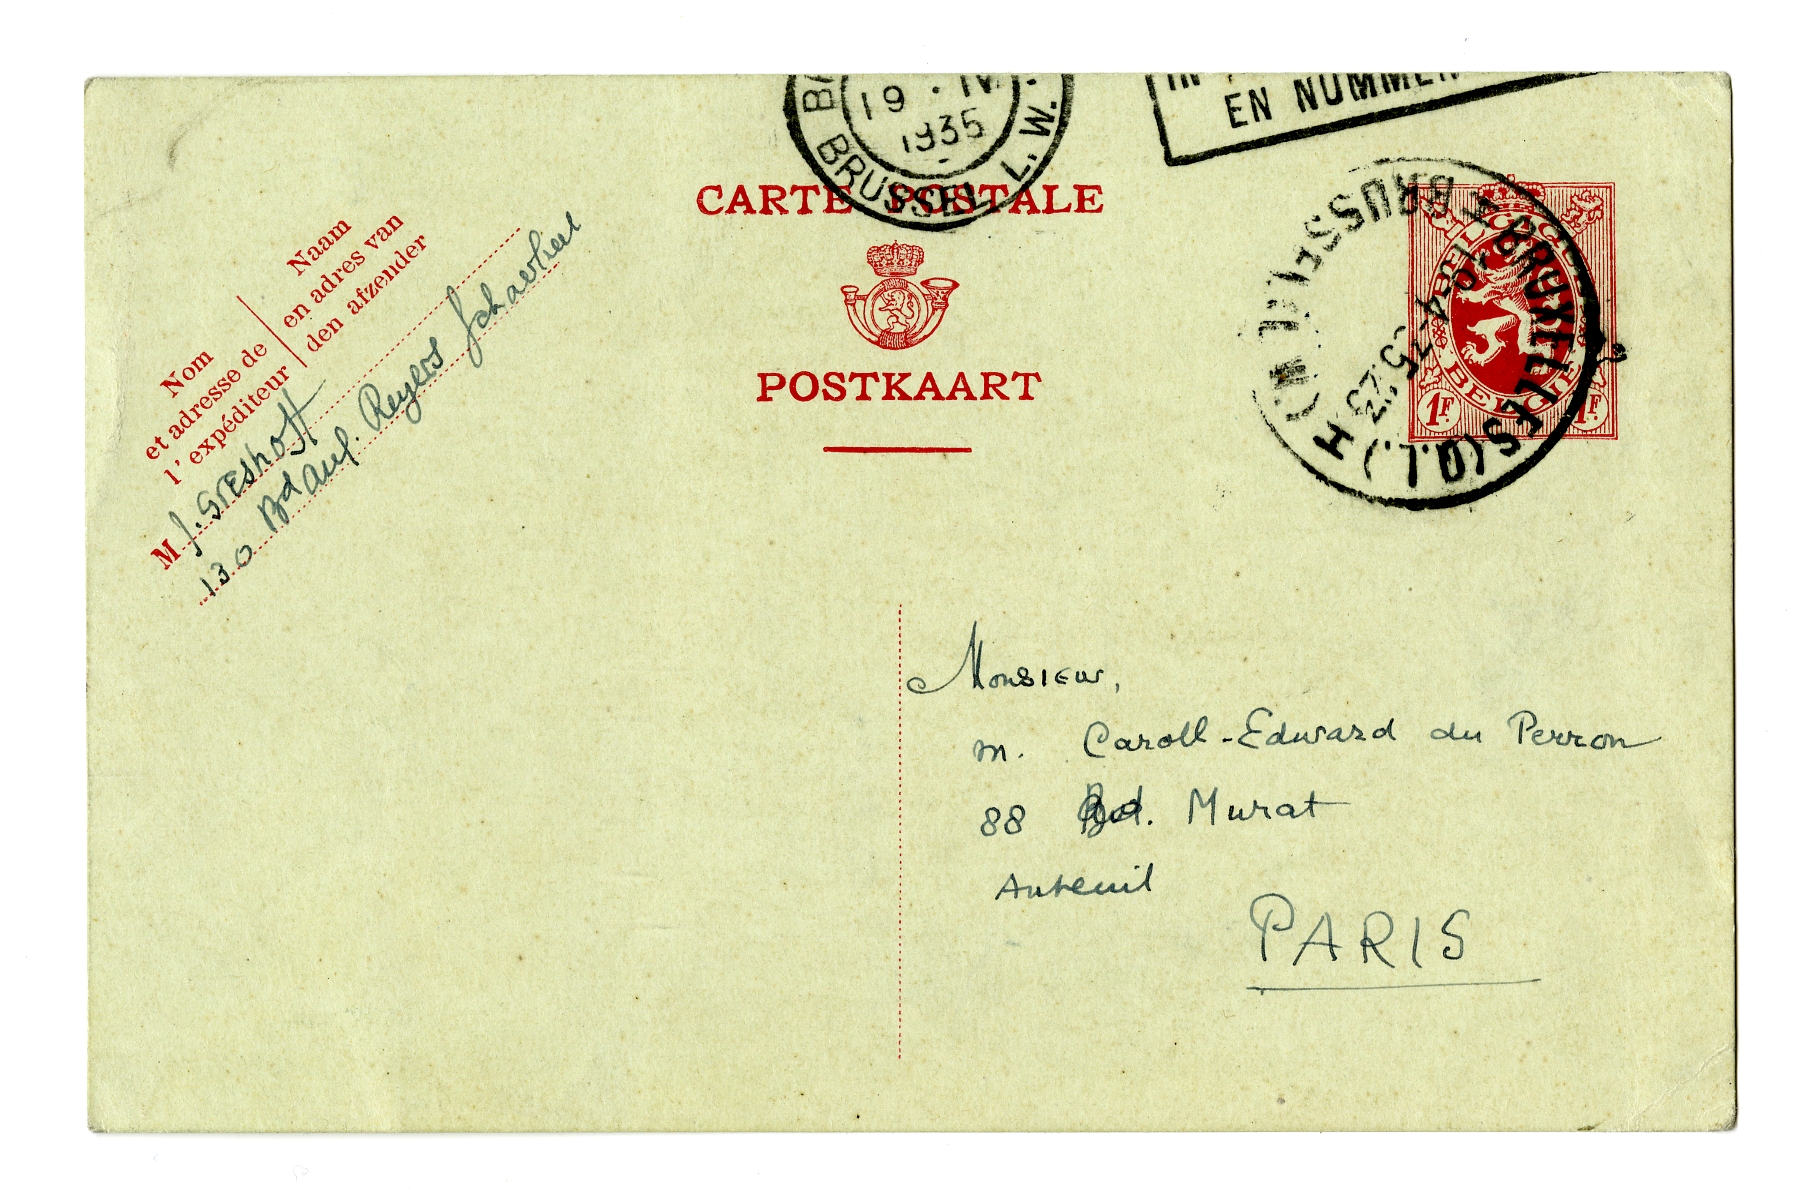 19 . IV
1935
BRUSSEL L.W.
EN NUMMER
CARTE POSTALE
POSTKAART
Naam
en adres van
den afzender
Nom
et adresse de
l'expéditeur
M J. Greshoff
130 Bd Aug. Reyers Schaerbeek
BRUXELLES (Q.L.) H
BRUSSEL (L.W.)
19-4 35 23
BELGIQUE
BELGIE
1F 1F.
Monsieur,
m. Caroll-Edward du Perron
88 Bd. Murat
Auteuil
PARIS